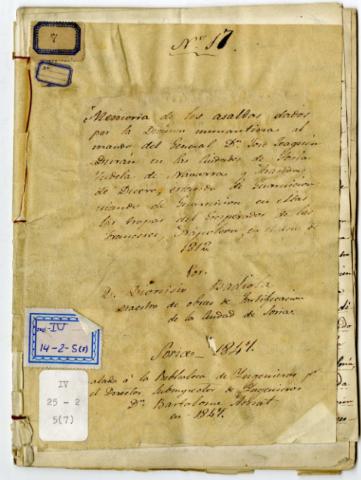 7
Nº 17.
Memoria de los asaltos dados
por la Division numantina al
mando del General Dn. José Joaquin
Durán en las Ciudades de Soria
Tudela de Navarra y Aranda
de Duero, estando de Guarnicion
en ellas
las tropas del Emperador de los
franceses, Napoleon, en el año de
1812
Por
D. Dionisio Badiola
maestro de obras de Fortificacion
de la Ciudad de Soria
Soria 1847.
á la Biblioteca de Yngenieros pr.
el Director Subinspector de Yngenieros
Dn. Bartolomé Amat
en 1847.
IV
14-2-5(7)
IV
25 - 2
5(7)